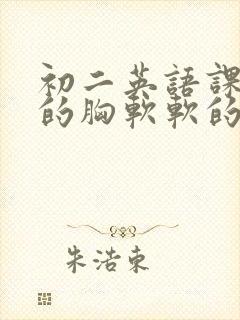 初二英語課
的胸軟軟的
朱浩東